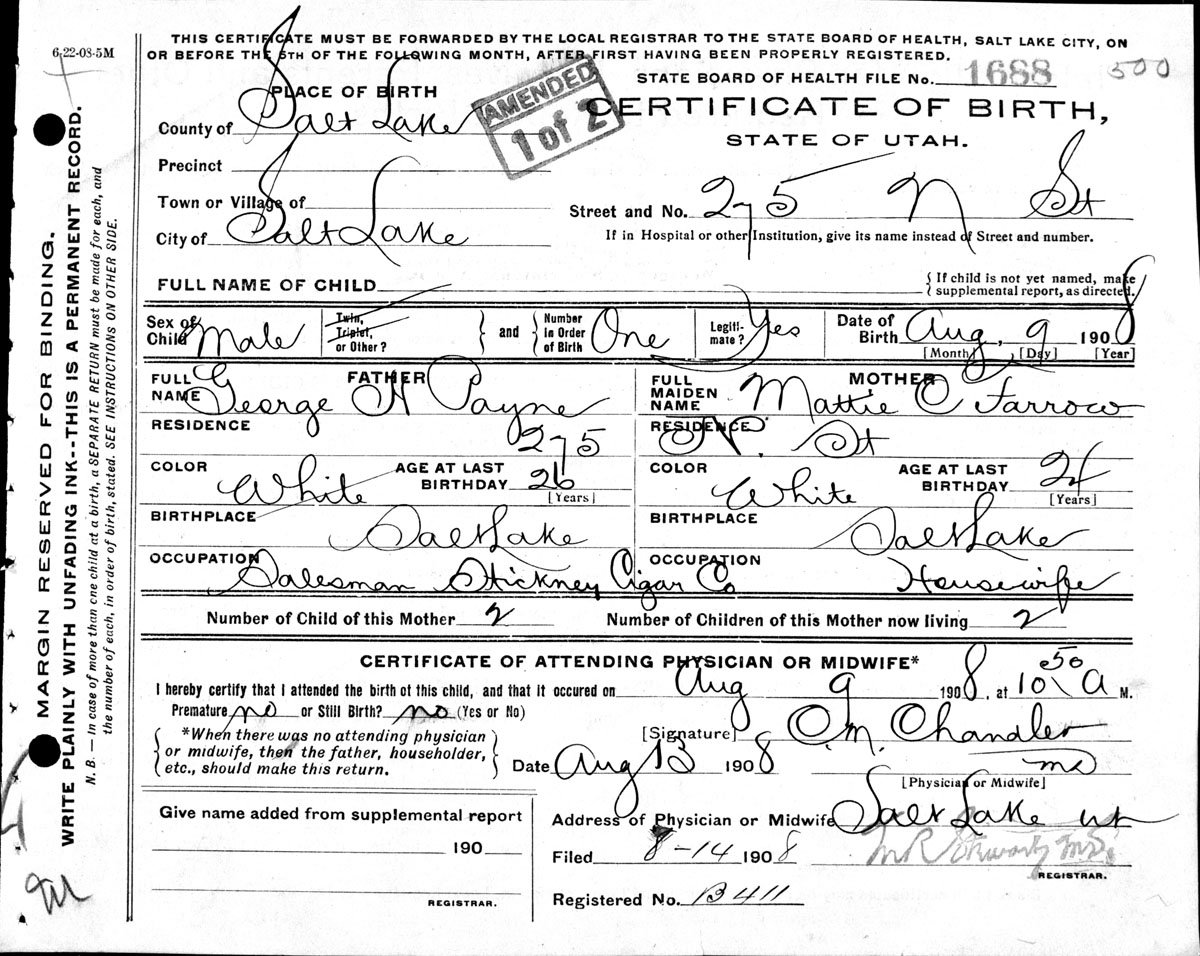 6-22-08-5M
THIS CERTIFICATE MUST BE FORWARDED BY THE LOCAL REGISTRAR TO THE STATE BOARD OF HEALTH, SALT LAKE CITY, ON
OR BEFORE THE 5TH OF THE FOLLOWING MONTH, AFTER FIRST HAVING BEEN PROPERLY REGISTERED.
STATE BOARD OF HEALTH FILE No. 1688 500
AMENDED
1 of 2
PLACE OF BIRTH
CERTIFICATE OF BIRTH,
STATE OF UTAH.
County of Salt Lake
Precinct
Town or Village of
Street and No. 275 N St
City of Salt Lake
If in Hospital or other Institution, give its name instead of Street and number.
FULL NAME OF CHILD
{ If child is not yet named, make
supplemental report, as directed.
Sex of Child Male
Twin, Triplet, or Other?
and
Number in Order of Birth One
Legiti-mate? Yes
Date of Birth Aug, 9 1908
[Month] [Day] [Year]
FATHER
FULL NAME George H Payne
MOTHER
FULL MAIDEN NAME Mattie C Farrow
RESIDENCE 275
RESIDENCE N. St
COLOR White
AGE AT LAST BIRTHDAY 26
[Years]
COLOR White
AGE AT LAST BIRTHDAY 24
[Years]
BIRTHPLACE Salt Lake
BIRTHPLACE Salt Lake
OCCUPATION Salesman Stickney Cigar Co
OCCUPATION Housewife
Number of Child of this Mother 2
Number of Children of this Mother now living 2
CERTIFICATE OF ATTENDING PHYSICIAN OR MIDWIFE*
I hereby certify that I attended the birth of this child, and that it occured on Aug 9 1908, at 10 50 A M.
Premature no or Still Birth? no (Yes or No)
*When there was no attending physician
or midwife, then the father, householder,
etc., should make this return.
[Signature] C.M. Chandler
MD
Date Aug 13 1908
[Physician or Midwife]
Address of Physician or Midwife Salt Lake ut
Give name added from supplemental report
190
REGISTRAR.
Filed 8-14 1908
REGISTRAR.
Registered No. B411
MARGIN RESERVED FOR BINDING.
WRITE PLAINLY WITH UNFADING INK--THIS IS A PERMANENT RECORD.
N. B. — In case of more than one child at a birth, a SEPARATE RETURN must be made for each, and
the number of each, in order of birth, stated. SEE INSTRUCTIONS ON OTHER SIDE.